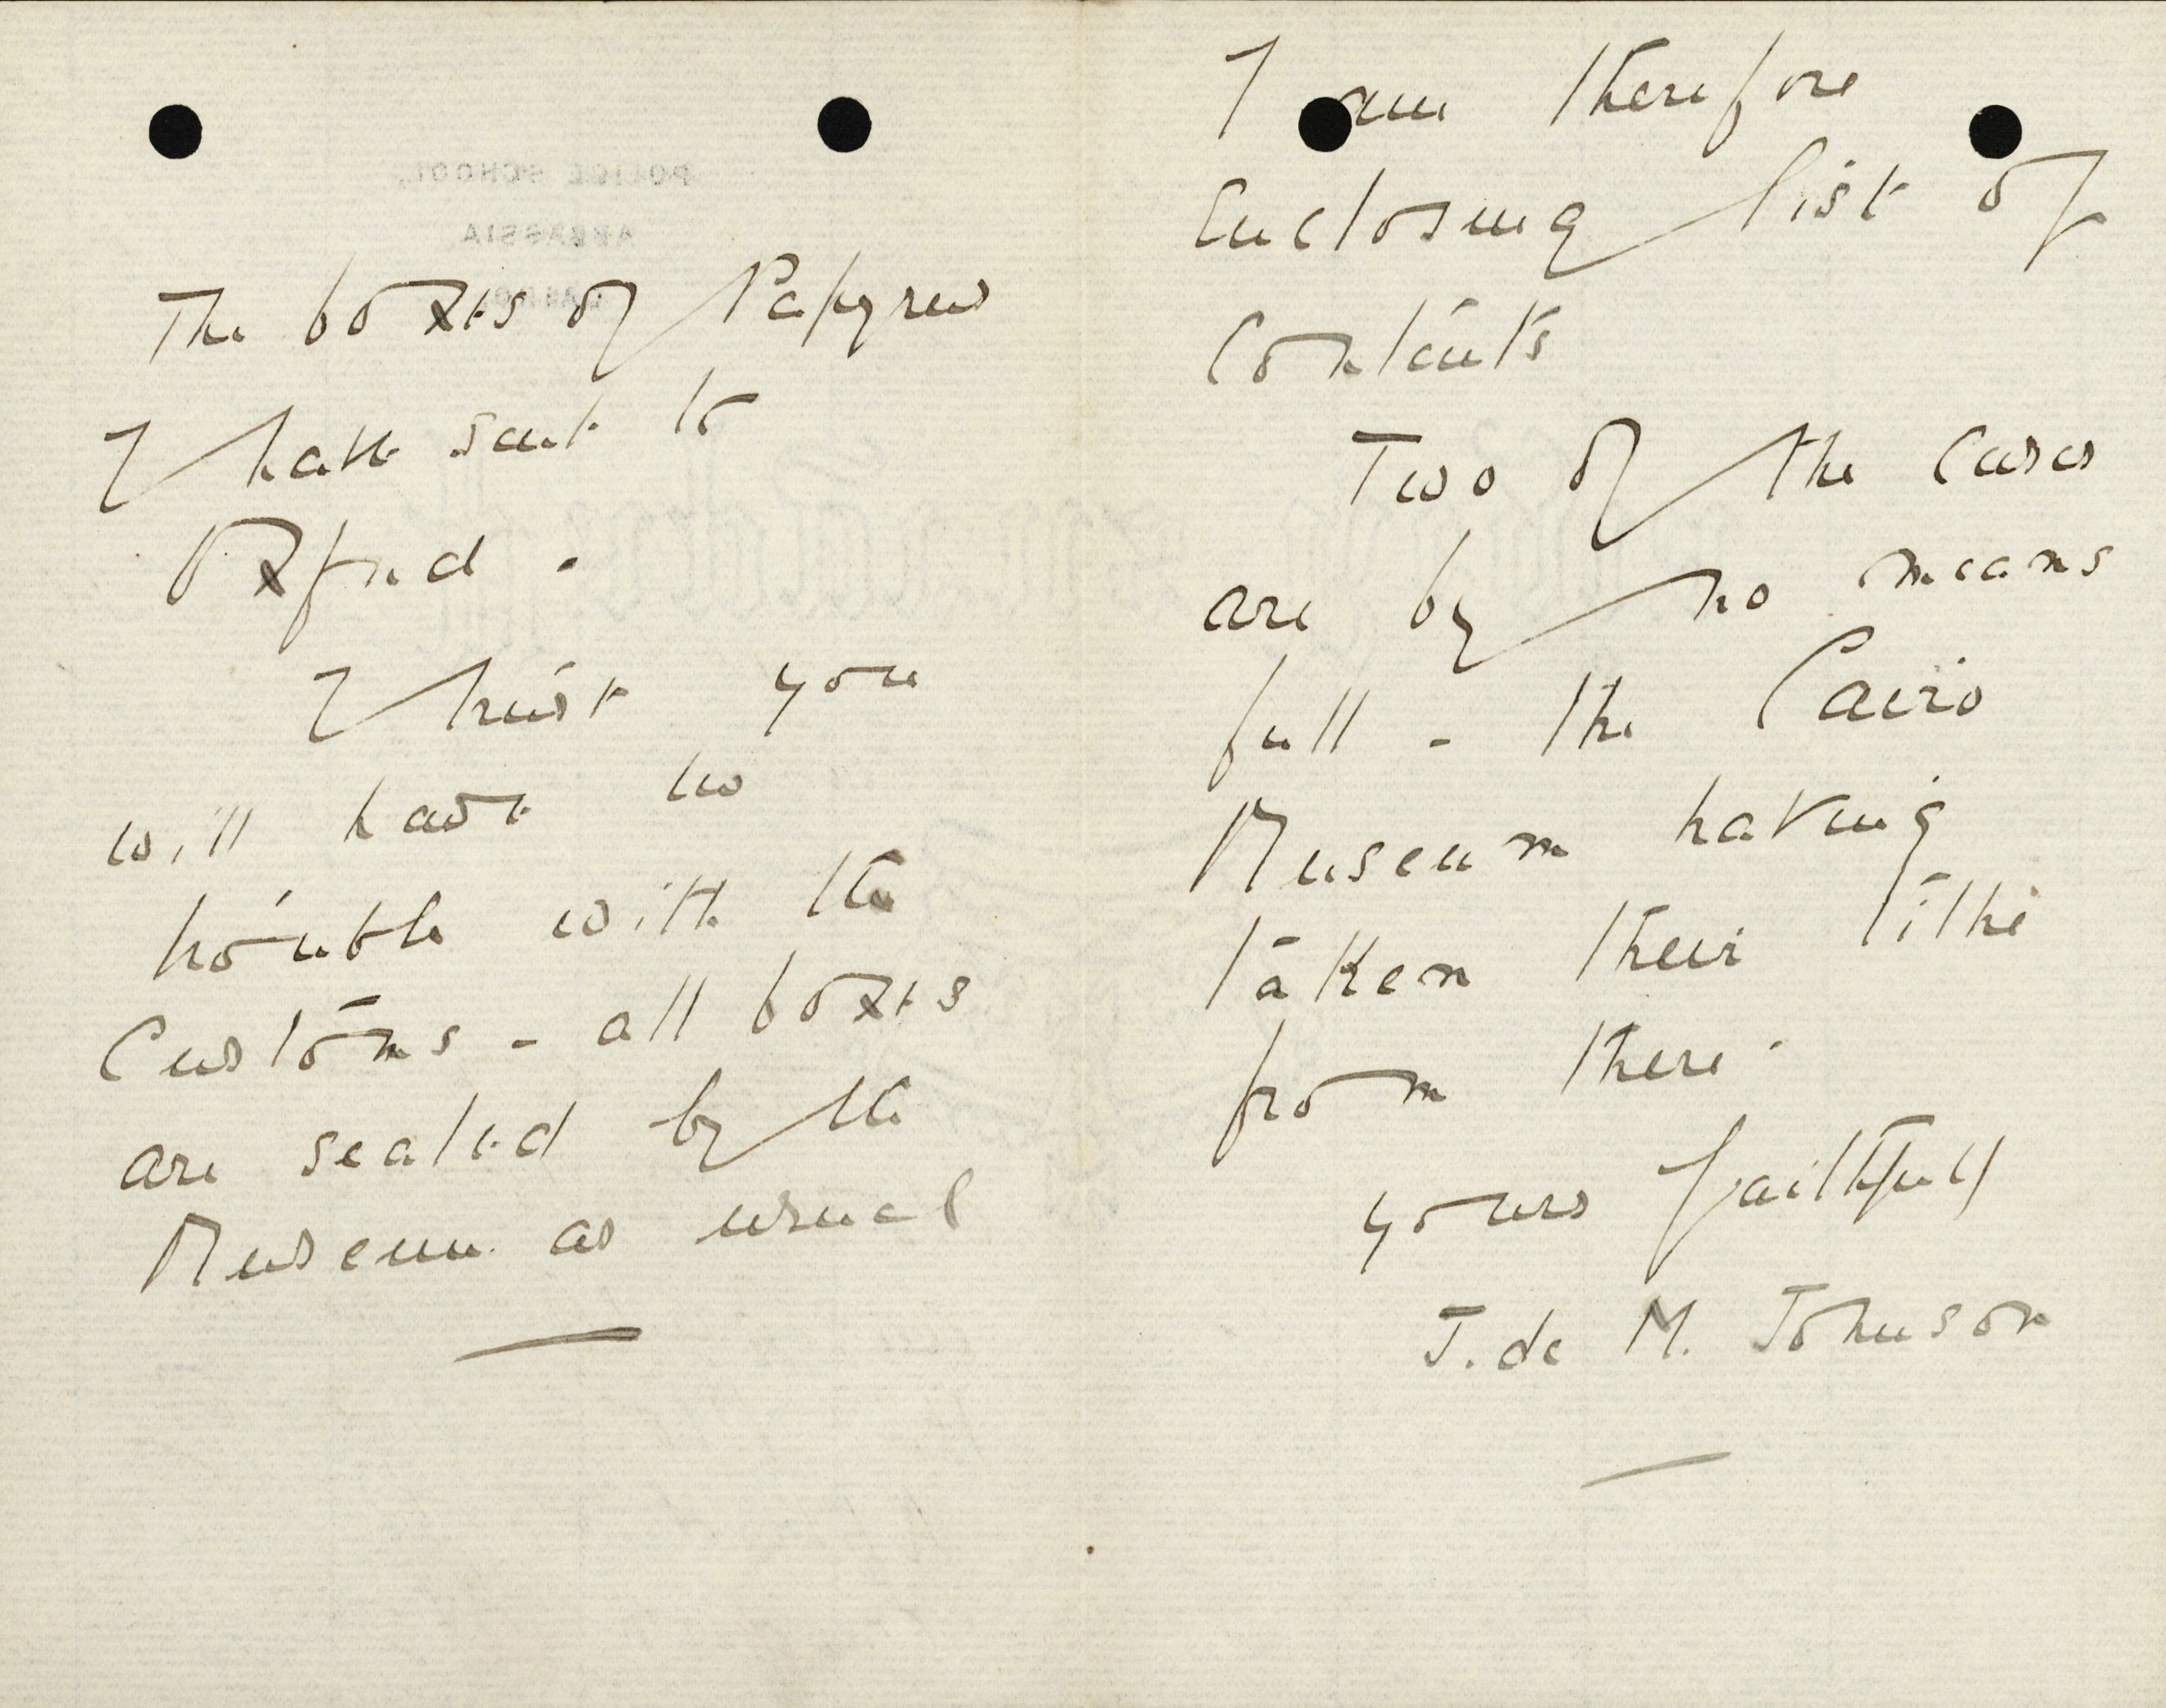 The boxes of Papyrus
I have sent to
Oxford.
I trust you
will have no
trouble with the
Customs - all boxes
are sealed by the
Museum as usual
I am therefore
Enclosing list of
Contents
Two of the Cases
are by no means
full - the Cairo
Museum having
taken their tithe
from there.
yours faithfully
J. de M. Johnson
POLICE SCHOOL,
ABBASSIA
CAIRO